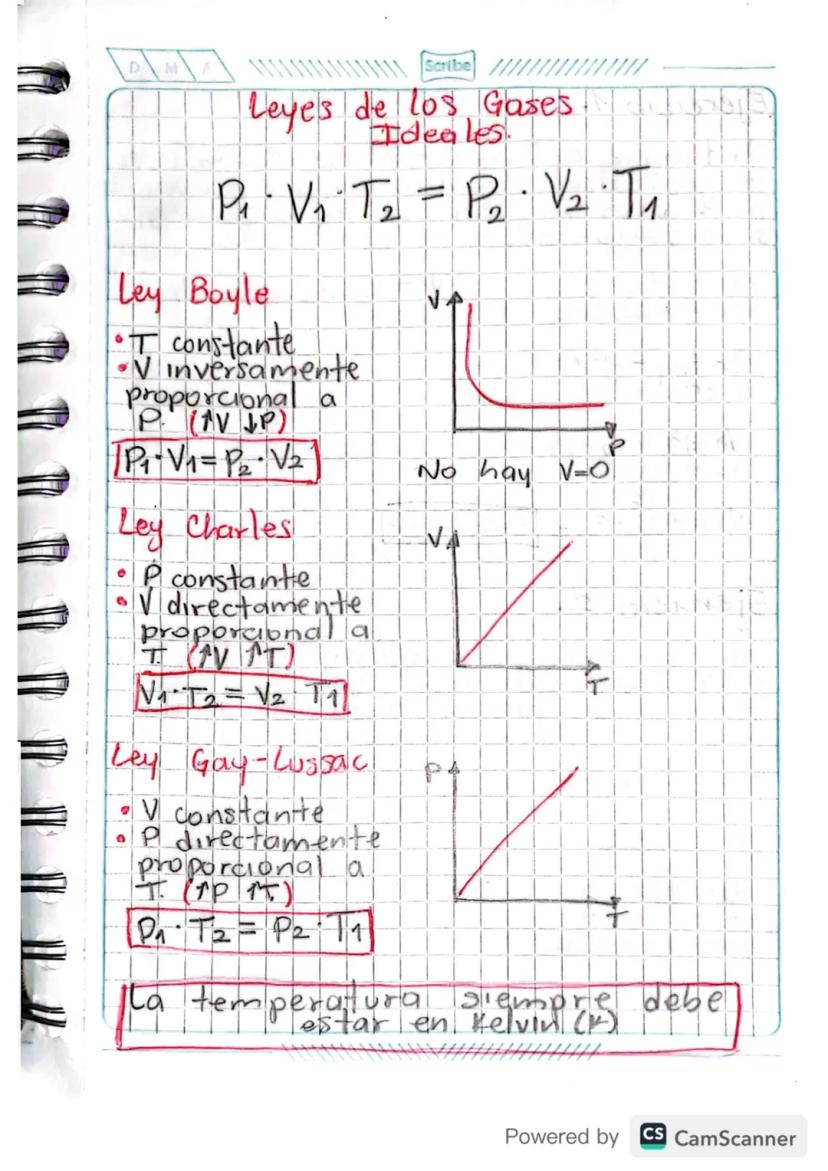 D M A
Scribe
Leyes de los Gases
Ideales.
P₁ · V₁ · T₂ = P₂ · V₂ · T₁
Ley Boyle
• T constante
• V inversamente
proporcional a
P. (↑V ↓P)
P₁ · V₁ = P₂ · V₂
V
P
No hay V=0
Ley Charles
• P constante
• V directamente
proporcional a
T. (↑V ↑T)
V₁ · T₂ = V₂ T₁
V
T
Ley Gay-Lussac
• V constante
• P directamente
proporcional a
T. (↑P ↑T)
P₁ · T₂ = P₂ · T₁
P
T
La temperatura siempre debe
estar en Kelvin (K)
Powered by CS CamScanner